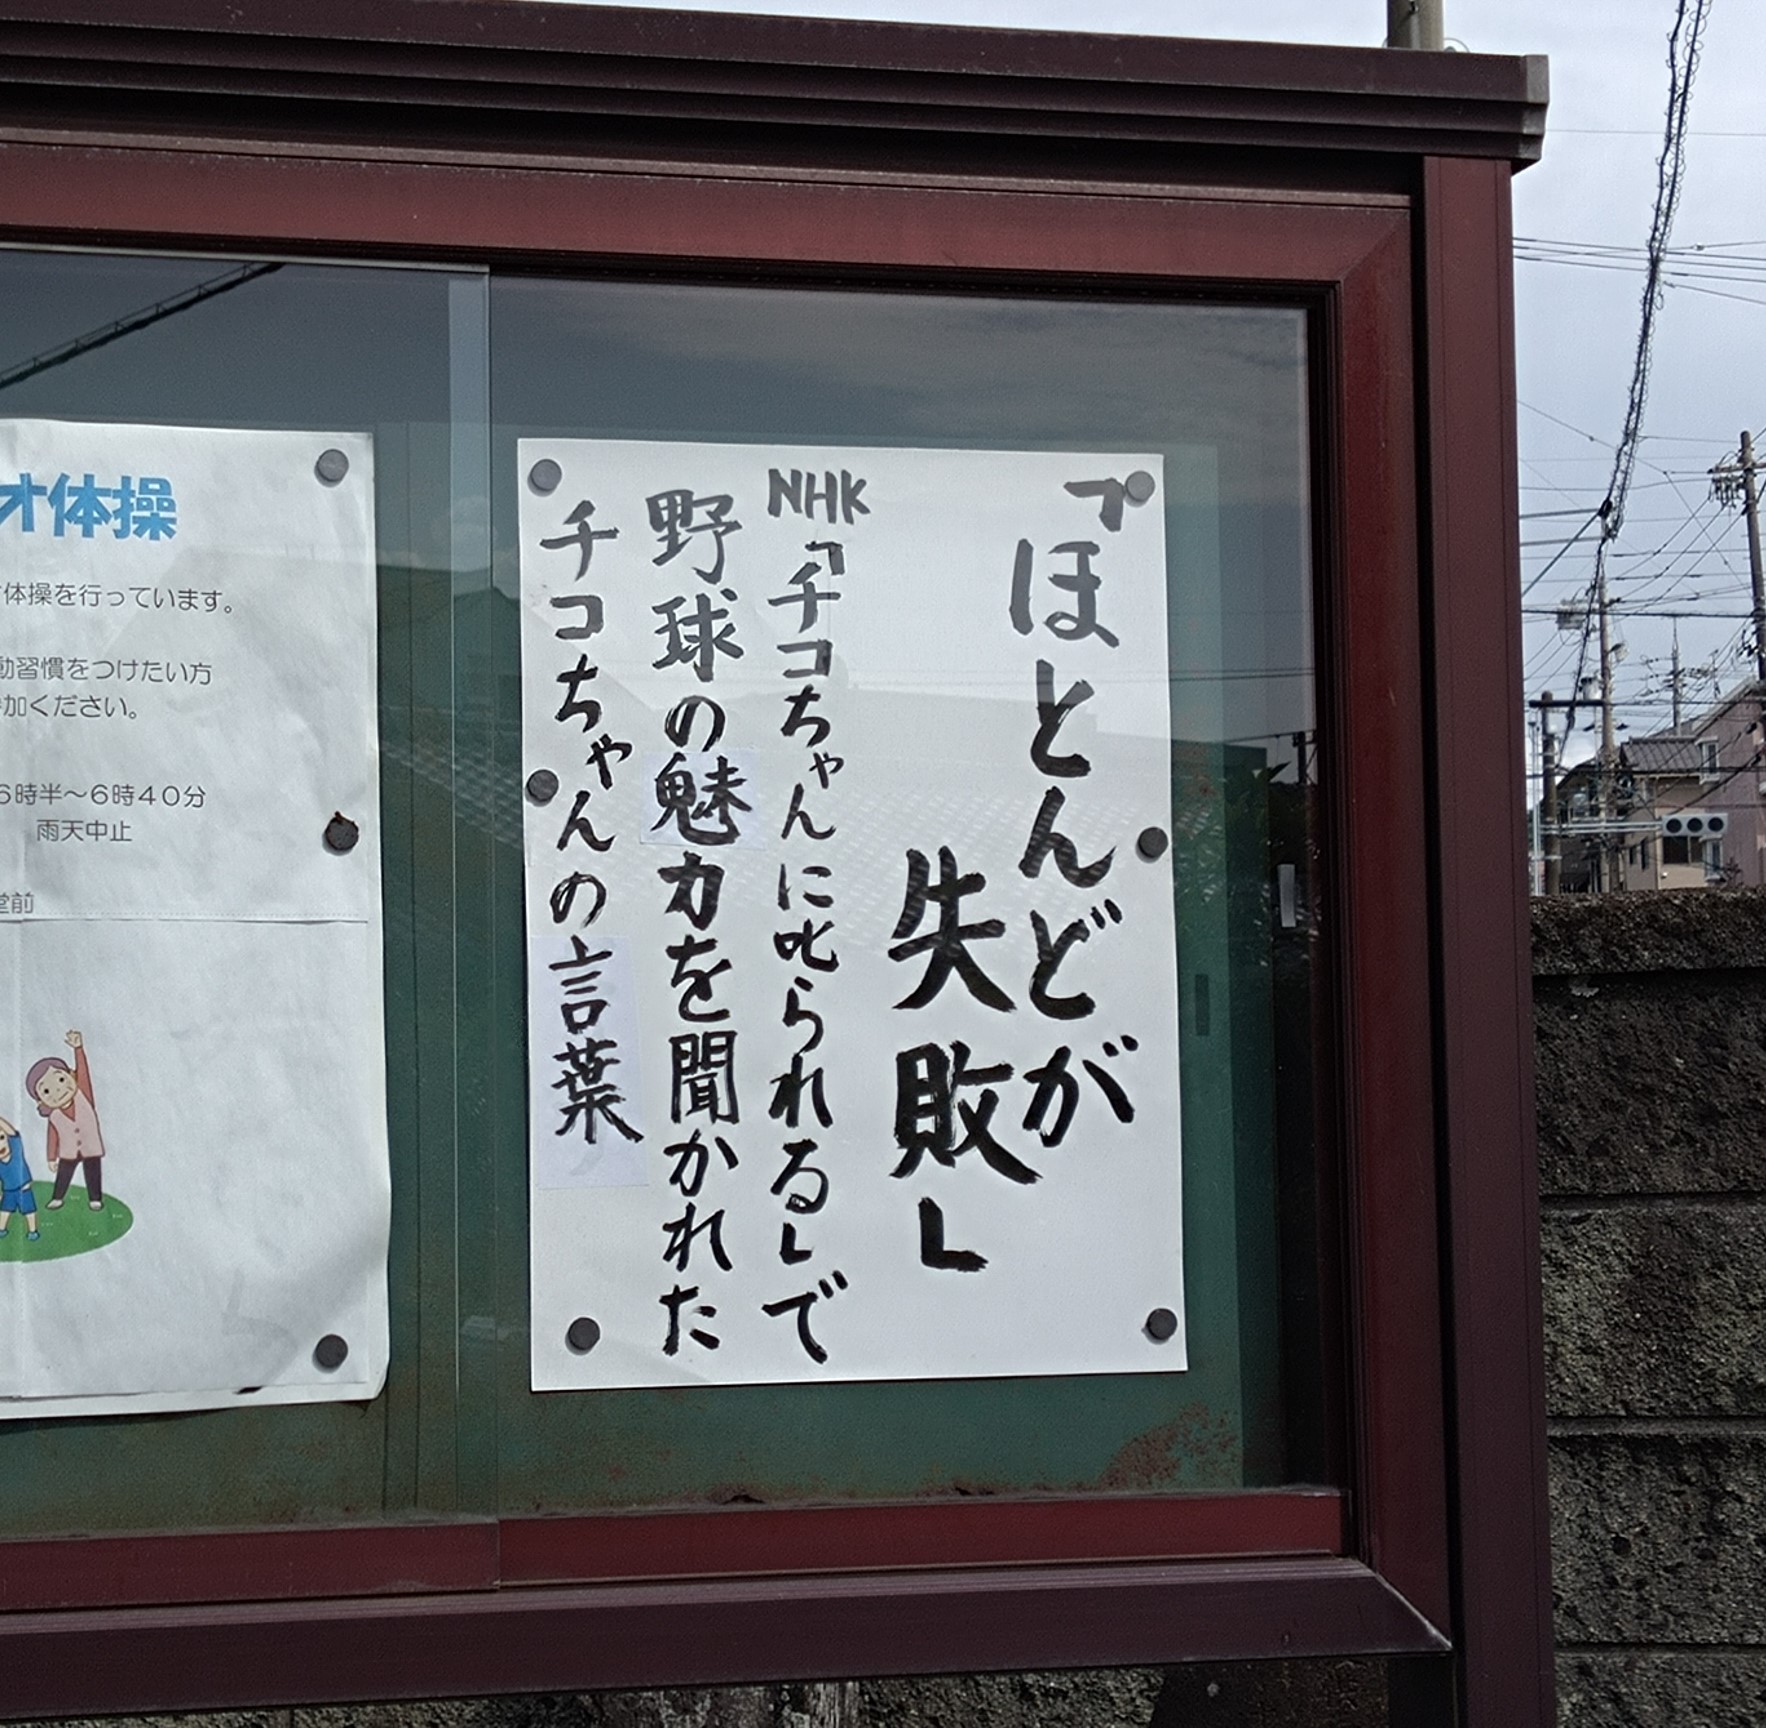 「ほとんどが
失敗」
NHK「チコちゃんに叱られる」で
野球の魅力を聞かれた
チコちゃんの言葉
オ体操
体操を行っています。
動習慣をつけたい方
加ください。
6時半〜6時40分
雨天中止
堂前